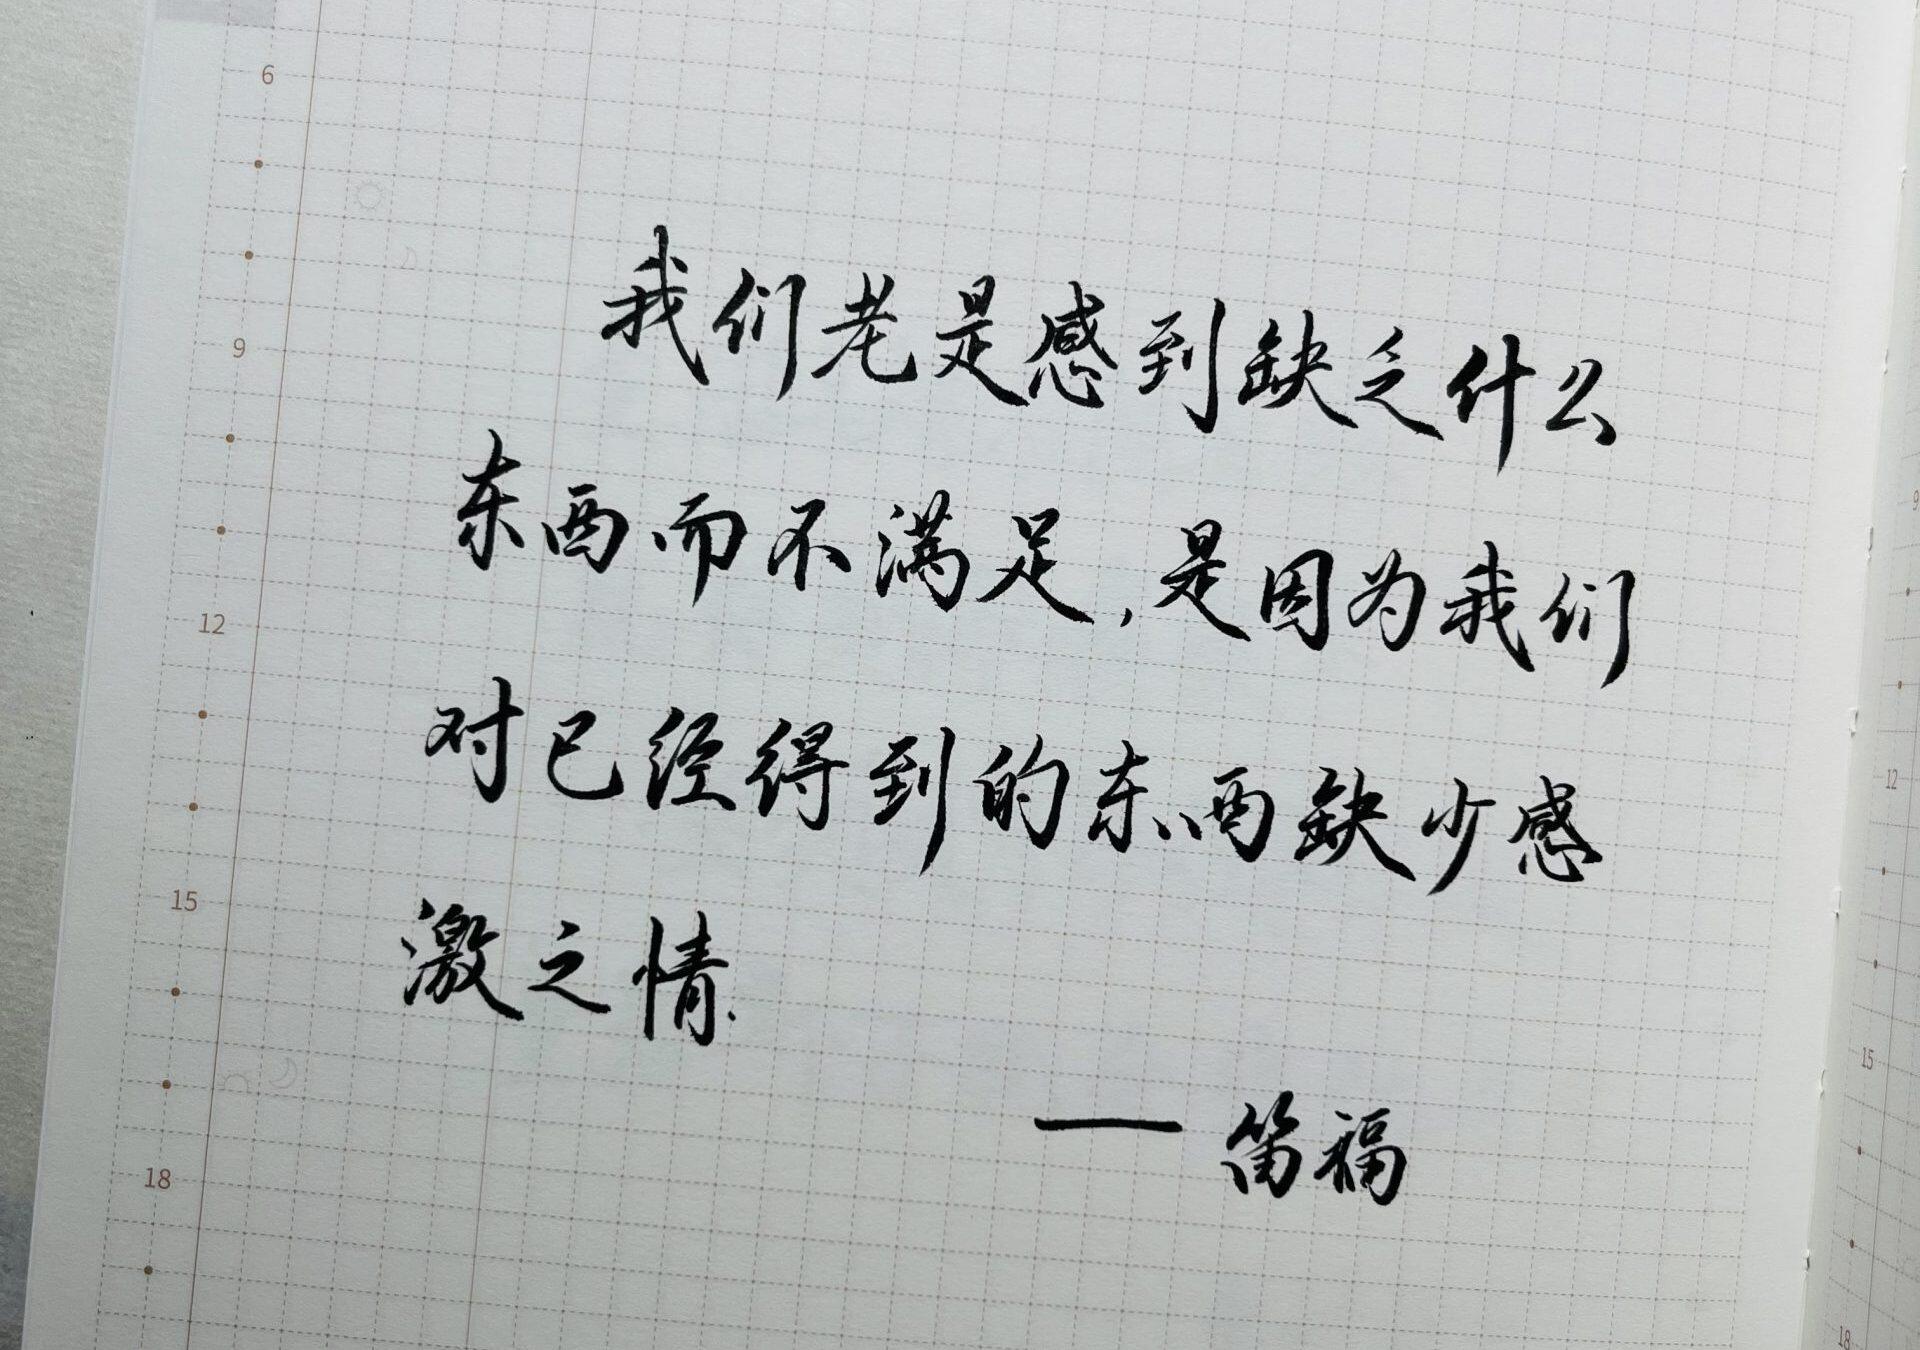 6
9
12
15
18
我们老是感到缺乏什么
东西而不满足,是因为我们
对已经得到的东西缺少感
激之情.
— 笛福
9
12
15
18